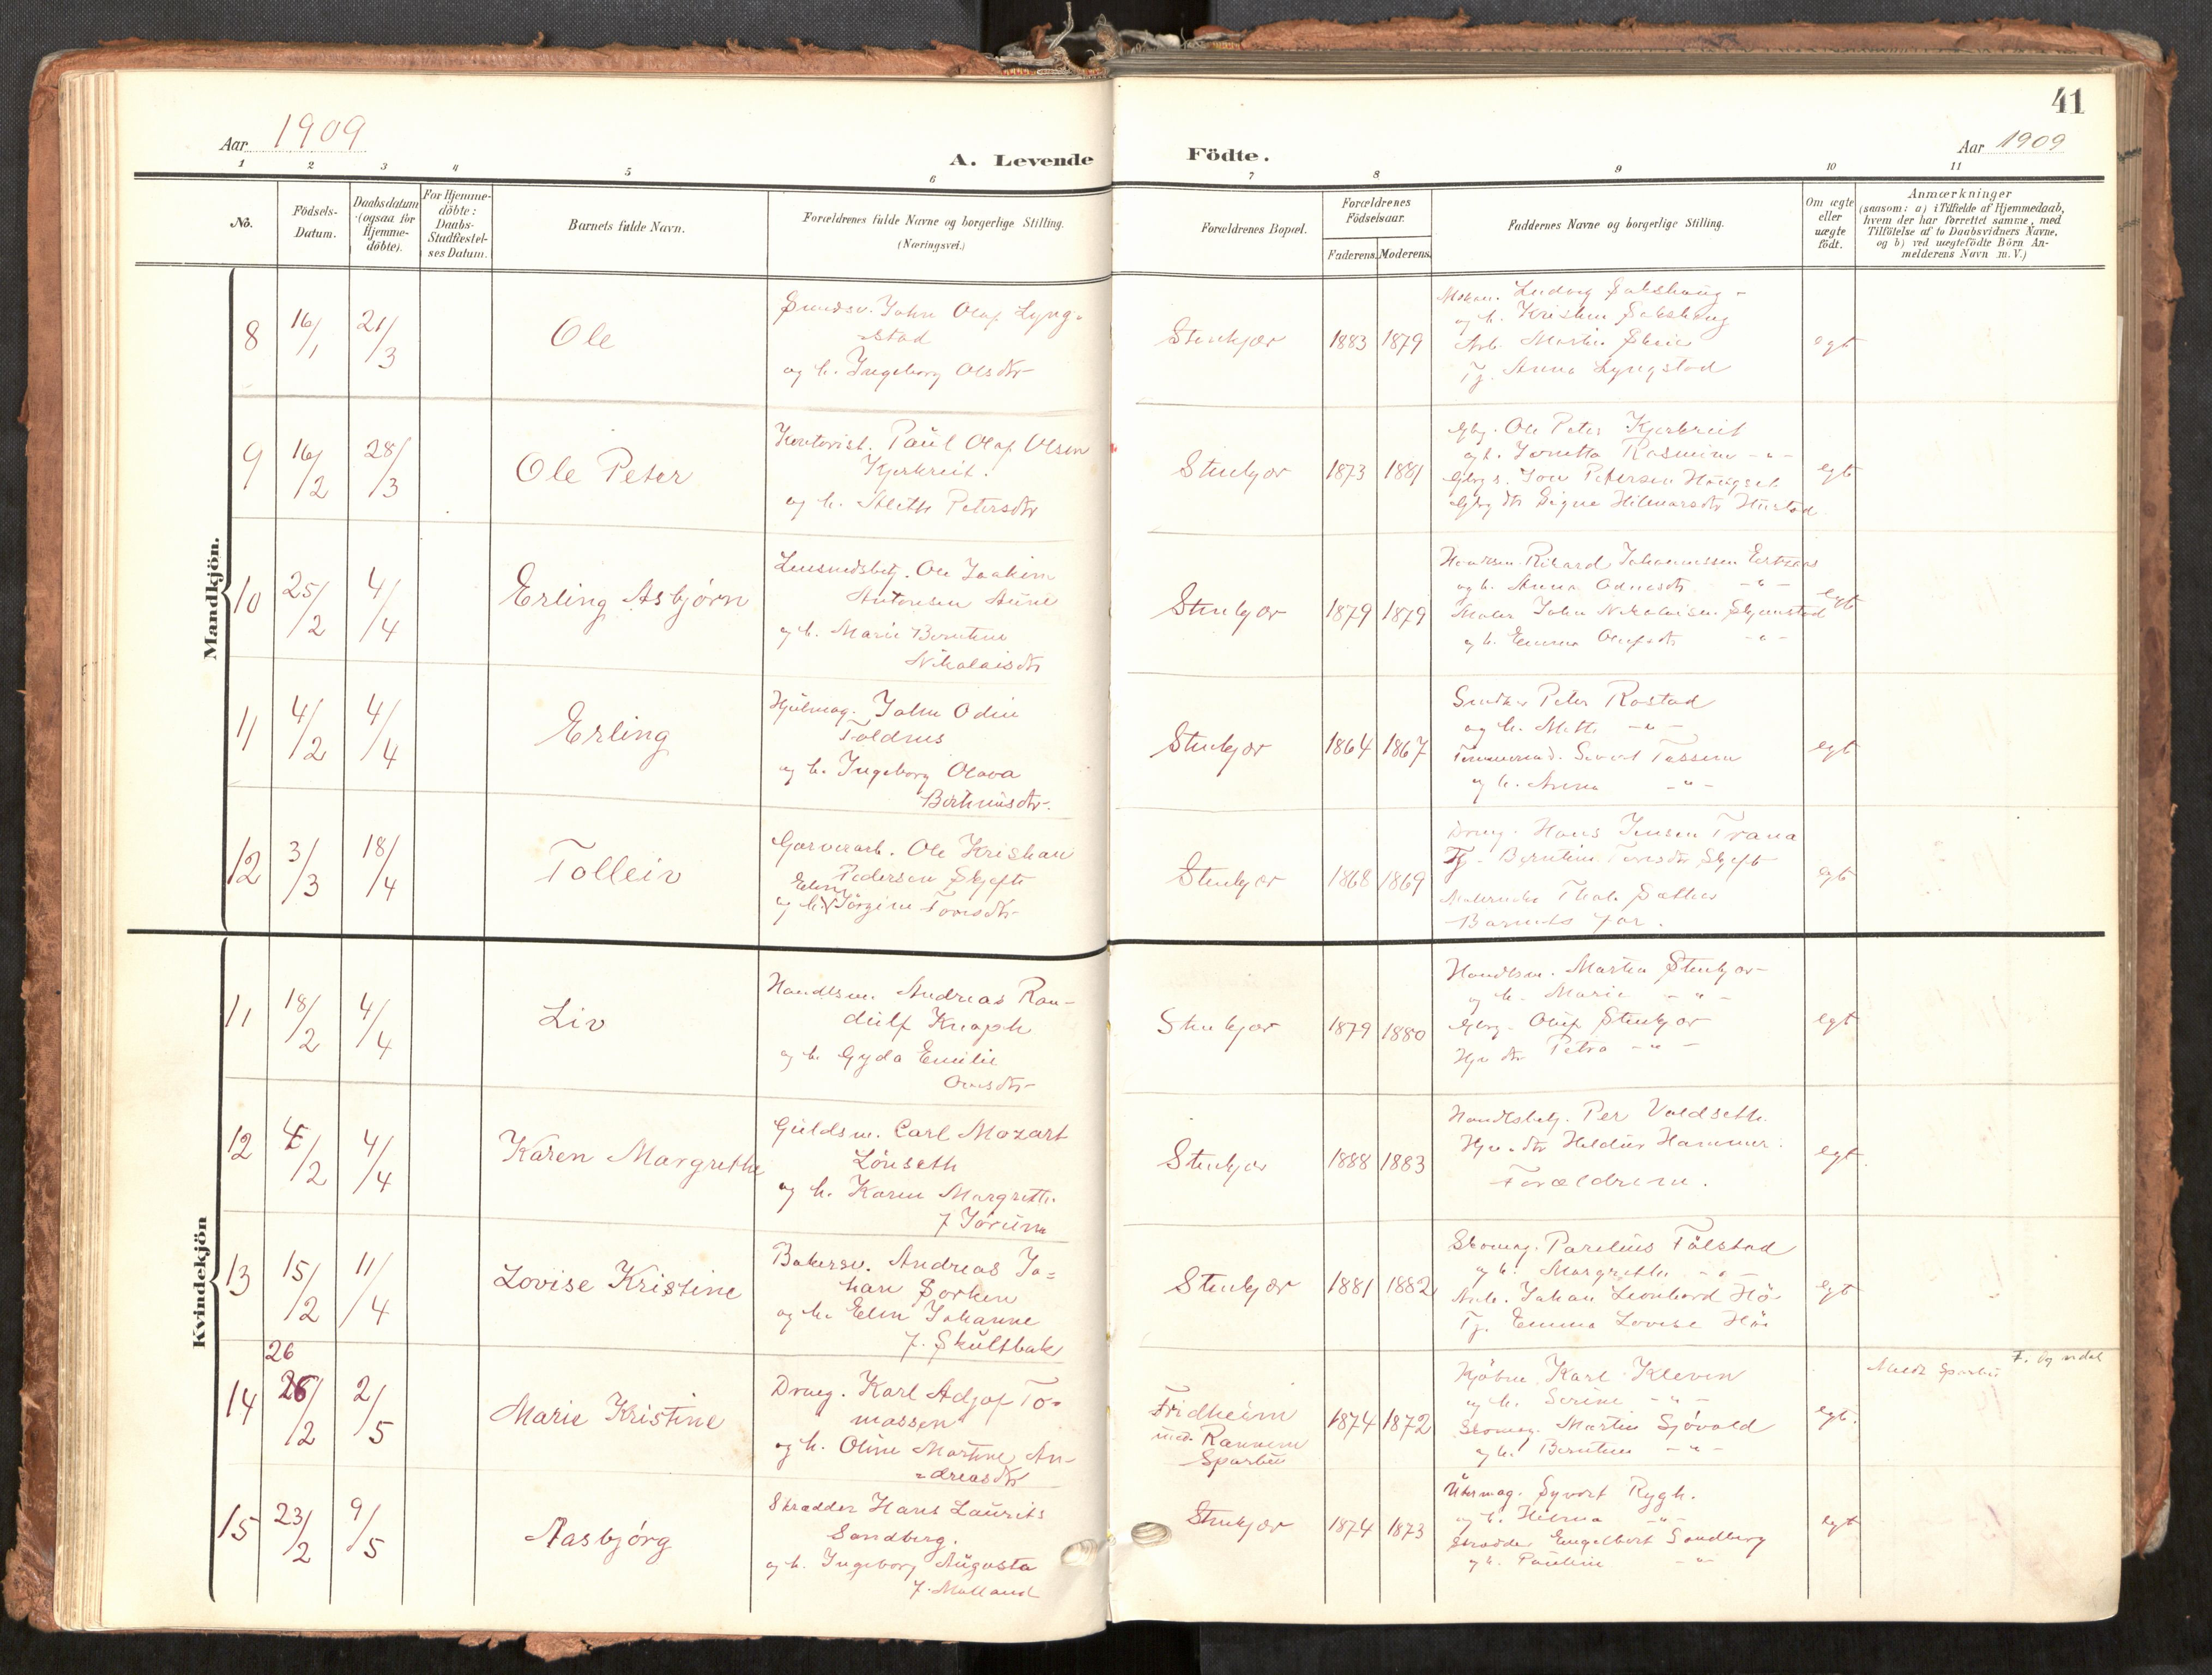 41
Aar 1909
A. Levende Födte.
Aar 1909
1 2 3 4 5 6 7 8 9 10 11
No.
Födsels-
Datum.
Daabsdatum
(ogsaa for
Hjemme-
döbte).
For Hjemme-
döbte:
Daabs-
Stadfæstel-
ses Datum.
Barnets fulde Navn.
Forældrenes fulde Navne og borgerlige Stilling.
(Næringsvei.)
Forældrenes Bopæl.
Forældrenes
Födselsaar.
Faderens. Moderens.
Faddernes Navne og borgerlige Stilling.
Om ægte
eller
uægte
födt.
Anmærkninger
(saasom: a) i Tilfælde af Hjemmedaab,
hvem der har forrettet samme, med
Tilföielse af to Daabsvidners Navne,
og b) ved uægtefödte Börn An-
melderens Navn m. V.)
Mandkjön.
8 16/1 21/3 Ole
John Olaf Lyng-
stad
og h. Ingeborg Olsdtr
Stenkjær 1883 1879
Ludvig Sakshaug
og h. Kristen Sakshaug
Arb. Martin
Tj. Anna Lyngstad
egt
9 16/2 28/3 Ole Peter
Kontorist. Paul Olaf Olsen
Kjerkreit.
og h. Petersdtr
Stenkjær 1873 1881
Gbr. Ole Peter Kjerkreit
og h. Rasmine - " -
Gbrs. Petersen
Gbr dtr Signe Hilmarsdtr Hustad
egt
10 25/2 4/4 Erling Asbjørn
Lensmdsbetj. Ole Joakim
Antonsen Aune
og h. Marie Berntine
Nikolaisdtr
Stenkjær 1879 1879
Rikard Johannessen
og h. Anna - " -
Maler John Nikolaisen
og h. Emma Olufsdtr - " -
egt
11 4/2 4/4 Erling
Hjulmag. John Odin
Foldnes
og h. Ingeborg Olava
Stenkjær 1864 1867
Snedker Peter Rostad
og h. Mette - " -
Tømmermd. Sivert Tessem
og h. Anna - " -
egt
12 3/3 18/4 Tolleiv
Garverarb. Ole Kristian
Pedersen Skjefte
Elen
og h. Jørgine Toresdtr
Stenkjær 1868 1869
Drag. Hans Jensen Trana
Tj. Berntine Toresdtr Skjefte
Barnets far.
egt
Kvindekjön
11 18/2 4/4 Liv
Handelsm. Andreas Ran-
dulf Knoph
og h. Gyda Emilie
Olesdtr
Stenkjær 1879 1880
Handelsm. Martin Stenkjær
og h. Marie - " -
Gbr. Oluf Stenkjær
Hjv dtr Petra - " -
egt
12 4/2 4/4 Karen Margrethe
Guldsm. Carl Mozart
Lønseth
og h. Karen Margrethe
f Jørum
Stenkjær 1888 1883
Handelsbetj. Per Valdseth.
Hjv. dtr Heldur Hammer.
Forældrene.
egt
13 15/2 11/4 Lovise Kristine
Bakersv. Andreas Jo-
han Sorken
og h. Elen Johanne
f. Skultbak
Stenkjær 1881 1882
Skomag. Parelius Følstad
og h. Margrethe - " -
Arb. Johan Leonhard Hö
Tj. Emma Lovise Hö
egt
14 26 26/2 2/5 Marie Kristine
Drag. Karl Adjof To-
massen
og h. Oline Martine An-
dreasdtr
Fridheim
und. Rannem
Sparbu
1874 1872
Kjöbm. Karl Kleven
og h. Serine - " -
Skomag. Martin Sjövold
og h. Berntine - " -
egt.
Meldt Sparbu
15 23/2 9/5 Aasbjørg
Skrædder Hans Laurits
Sandberg.
og h. Ingeborg Augusta
f. Molland
Stenkjær 1874 1873
Uhrmag. Syvert Rygh.
og h. Hilma - " -
Skrædder Engelbert Sandberg
og h. Pauline - " -
egt